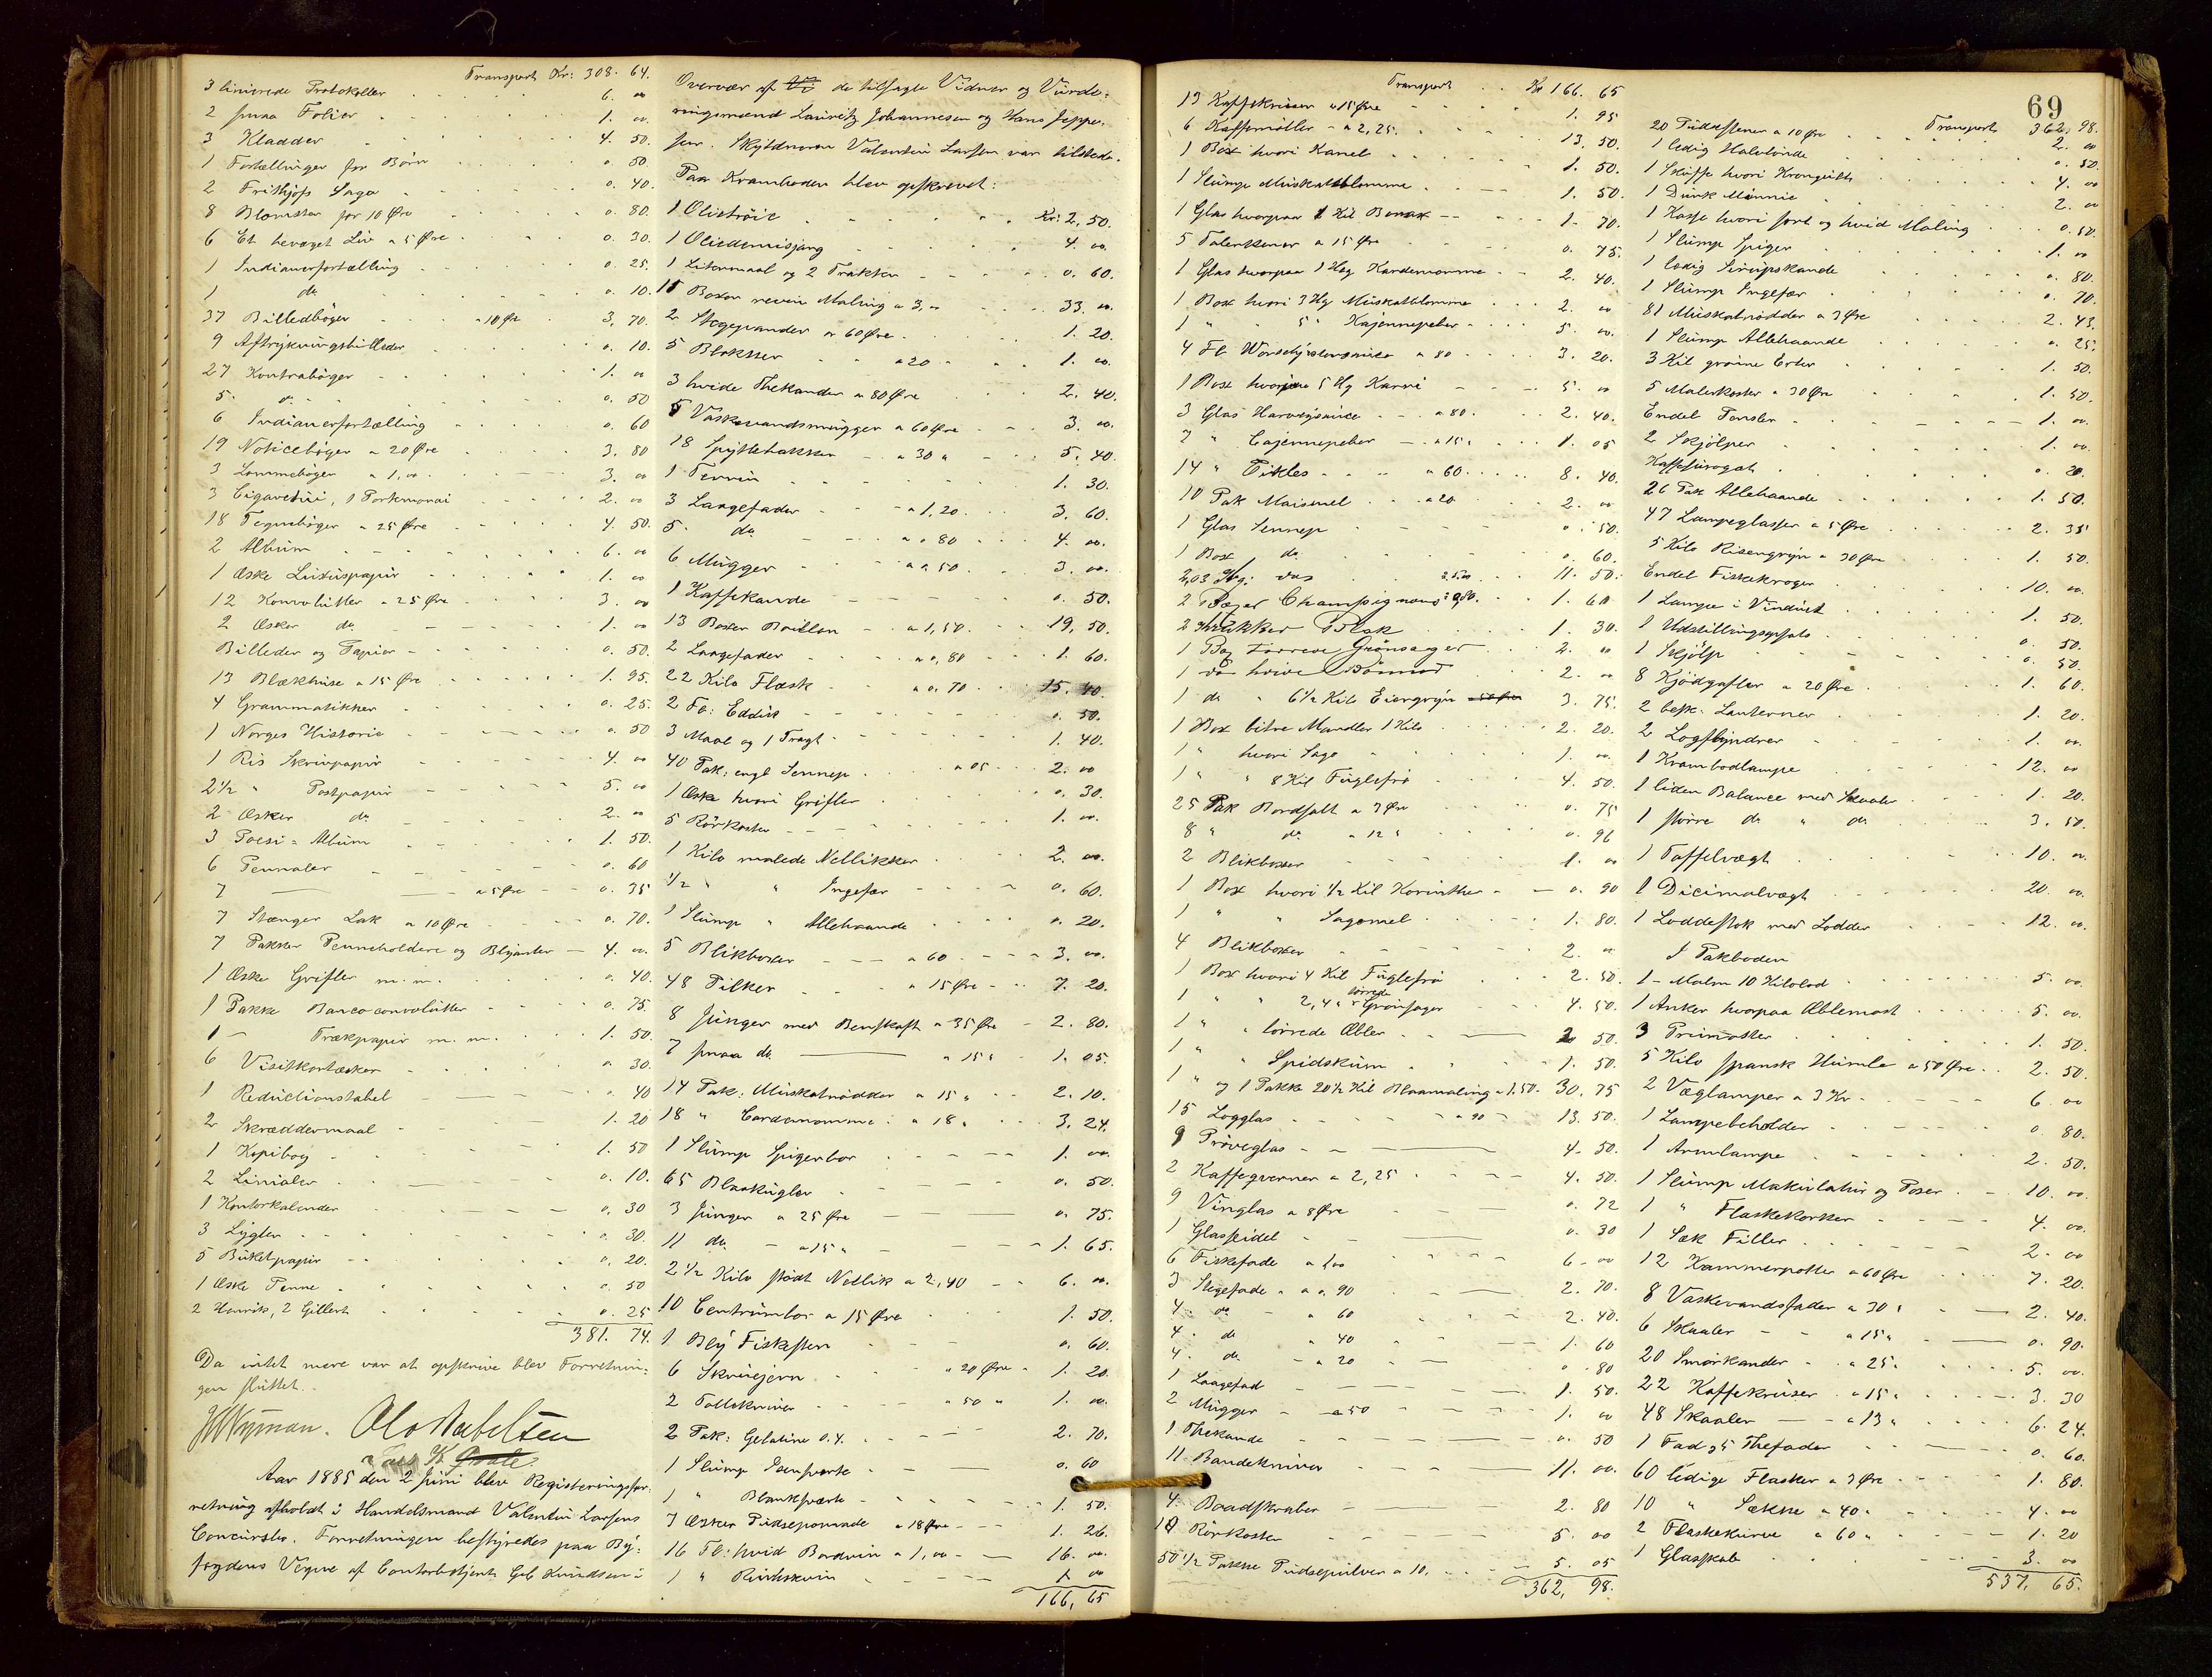 Transport Kr: 308. 64.
3 linierede Protokoller 6. 00
2 smaa Folier 1. 00
3 Kladder 4. 50.
1 Fortællinger for Børn 0. 50.
2 Frithjofs Saga 0. 40.
8 Blomster for 10 Øre 0. 80.
6 Et bevæget Liv a 5 Øre 0. 30.
1 Indianerfortælling 0. 25.
1 do 0. 10.
37 Billedbøger a 10 Øre 3. 70.
9 Aftrykningsbilleder 0. 10.
27 Kontrabøger 1. 00
5 do 0. 50
6 Indianerfortælling 0. 60
19 Noticebøger a 20 Øre 3. 80
3 Lommebøger a 1,00 3. 00
3 Cigaretui, 1 Portmonai 2. 00
18 Tegnebøger a 25 Øre 4. 50.
2 Album 6. 00
1 Æske Luxuspapir 1. 00
12 Konvolutter a 25 Øre 3. 00
2 Æsker do 1. 00
Billeder og Papir 0. 50.
13 Blækhuse a 15 Øre 1. 95.
4 Grammatikker 0. 25.
1 Norges Historie 0. 50
1 Ris Skrivpapir 4. 00
2 1/2 " Postpapir 5. 00
2 Æsker do 2. 00
3 Poesi=Album 1. 50.
6 Pennaler 0. 60
7 — a 5 Øre 0. 35
7 Stænger Lak a 10 Øre 0. 70.
7 Pakker Penneholdere og Blyanter 4. 00.
1 Æske Grifler m. m. 0. 40.
1 Pakke Bancoconvolutter 0. 75.
1 — Trækpapir m. m. 1. 50.
6 Visitkortæsker 0 30.
1 Reductionstabel 0. 40
2 Skræddermaal 1. 20
1 Kopibog 1. 50
2 Linialer 0. 10.
1 Kontorkalender 0. 30
3 Lygter 0. 30.
5 Buketpapir 0. 20.
1 Æske Penne 0. 50
2 Henrik, 2 Gillert 0. 25
381. 74.
Da intet mere var at opskrive blev Forretnin=
gen sluttet.
Aar 1885 den 2 Juni blev Registreringsfor=
retning afholdt i Handelsmand Valentin Larsens
Concursbo. Forretningen bestyredes paa By=
fogdens Vegne af Contorbetjent Geb Knudsen i
Overvær af de tilsagte Vidner og Vurde=
ringsmænd Lauritz Johannesen og Hans Jeppe=
sen. Skyldneren Valentin Larsen var tilstede.
Paa Kramboden blev opskrevet:
1 Olietrøie Kr: 2, 50.
1 Oliedunnisjang 4. 00.
1 Litermaal og 2 Trakter 0. 60.
11 Boxer reven Maling a 3,00 33. 00.
2 Stegepander a 60 Øre 1. 20.
5 Blokker a 20 1. 00.
3 hvide Thekander a 80 Øre 2. 40.
5 Vaskevandsmugger a 60 Øre 3. 00.
18 Spyttebakker a 30 " 5. 40.
1 Terrin 1. 30.
3 Laagefader a 1,20 3. 60.
5 do a 0 80 4. 00.
6 Mugger a 0. 50 3. 00.
1 Kaffekande 0. 50.
13 Boxer Bouillon a 1,50 19. 50.
2 Laagefader a 0, 80 1. 60.
22 Kilo Flæsk a 0. 70 15. 40.
2 Fl: Eddik 0. 50.
3 Maal og 1 Tragt 1. 40.
40 Pak. engl Sennep a 05 2. 00
1 Æske hvori Grifler 0. 30.
5 Rørkoster 1. 00.
1 Kilo malede Nellikker 2. 00.
1/2 " " Ingefær 0. 60.
1 Slump " Allehaande 0. 20.
5 Blikboxer a 60 3. 00.
48 Pilker a 15 Øre 7. 20.
8 Junger med Benskaft a 35 Øre 2. 80.
7 smaa do a 15 " 1. 05.
14 Pak: Muskatnødder a 15 " 2. 10.
18 " Cardemomme a 18 " 3. 24.
1 Slump Spigerbor 1. 00.
65 Blaakugler 0. 50.
3 Junger a 25 Øre 0. 75.
11 do a 15 " 1. 65.
2 1/2 Kilo stødt Nellik a 2,40 6. 00.
10 Centrumbor a 15 Øre 1. 50.
1 Bly Fiskesten 0. 60.
6 Skruejern a 20 Øre 1. 20.
2 Follekniver a 50 " 1. 00.
2 Pak: Gelatine 0.4. 2. 70.
1 Slump Isensværte 0. 60
1 " Blanksværte 1. 50.
7 Æsker Pudsepomade a 18 Øre 1. 26.
16 Fl: hvid Bordvin a 1,00 16. 00.
1 " Rinskvin 1 00
166, 65
Transport Kr 166. 65
13 Kaffekruser a 15 Øre 1. 95
6 Kaffemøller a 2,25. 13. 50.
1 Box hvori Kanel 1. 50.
1 Slump Muskatblomme 1. 50.
1 Glas hvorpaa 1 Kil Borax 1. 70.
5 Talerkener a 15 Øre 0. 75.
1 Glas hvorpaa 1 Hg Kardemomme 2. 40.
1 Box hvori 3 Hg Muskatblomme 2. 00
1 " " 5 " Kajennepeber 5. 00.
4 Fl. a 80 3. 20.
1 Box hvorpaa 5 Hg Karri 5. 00
3 Glas Harveysauce a 80. 2. 40.
7 " Cajennepeber a 15 " 1. 05
14 " Pikles a 60. 8. 40.
10 Pak Maismel a 20 2. 00
1 Glas Sennep 0. 50.
1 Box do 0. 60.
11. 50.
2 Champignons a 0,80. 1. 60
2 Krukker 1. 30.
1 Box tørrede Grønsager 2. 00
1 do hvide Bønner 2. 00
1 do " 6 1/2 Kilo Eiergryn 3. 75.
1 Box bitre Mandler 1 Kilo 2. 20.
1 " hvori Sago 1. 00.
1 " " 8 Kil Fuglefrø 4. 50.
25 Pak Bordsalt a 3 Øre 0. 75
8 " do a 12 " 0. 96
2 Blikboxer 1. 00
1 Box hvori 1/2 Kil Korinther 0. 90
1 " " Sagomel 1. 80.
4 Blikboxer 2. 00
1 Box hvori 4 Kil Fuglefrø 2. 50.
1 " " 2,4 " tørrede Grønsager 4. 50.
1 " " tørrede Æbler 2 50.
1 " " Spidskum 1. 50.
1 " og 1 Pakke 20 1/2 Kil Blaamaling a 1.50. 30. 75
15 Logglas a 90 13. 50.
9 Prøveglas 4. 50.
2 Kaffegverner a 2,25 4. 50.
9 Vinglas a 8 Øre 0. 72
1 Glasseidel 0. 30
6 Fiskefade a 1,00 6. 00
3 Stegefade a 0. 90 2. 70.
4 do " 60 2. 40.
4 do " 40 1. 60
4 do a 20 0. 80
1 Laagefad 1. 50.
2 Mugger a 50 1. 00
1 Thekande 0. 50
11 Bandekniver 11. 00.
4 Baadskraber 2. 80
10 Rørkoster 5. 00
50 1/2 Pakke Pudsepulver a 10. 5. 05
362, 98.
69
Transport 362, 98.
20 Pudsestener a 10 Øre 2. 00
1 ledig Halvtønde 0. 50.
1 Skuffe hvori Krongult 4. 00
1 Dunk Mønnie 2. 00
1 Kasse hvori sort og hvid Maling 0. 50.
1 Slump Spiger 1. 00
1 ledig Sirupskande 0. 80.
1 Slump Ingefær 0. 70.
81 Muskatnødder a 3 Øre 2. 43.
1 Slump Allehaande 0. 25.
3 Kil grønne Erter 1. 50.
5 Malerkoster a 30 Øre 1. 50.
Endel Pensler 1. 00.
2 Skjølper 1. 00.
Kaffesurogat 0. 20.
26 Pak Allehaande 1. 50.
47 Lampeglasser a 5 Øre 2. 35
5 Kilo Risengryn a 30 Øre 1. 50.
Endel Fiskekroger 10. 00.
1 Lampe i Vinduet 1. 50.
1 Udstillingsopsats 0. 50.
1 Skjølp 0. 50.
8 Kjødgafler a 20 Øre 1. 60.
2 besk. Lanterner 1. 20.
2 Logsbyndrer 1. 00.
1 Krambodlampe 12. 00
1 liden Balance med Skaaler 1. 20.
1 større do " do 3. 50.
1 Taffelvægt 10. 00.
1 Dicimalvægt 20. 00.
1 Loddestok med Lodder 12. 00.
I Pakboden
1 - Malm 10 Kilolod 5. 00.
1 Anker hvorpaa Æblemost 5. 00.
3 1. 50.
5 Kilo spansk Humle a 50 Øre 2. 50.
2 Væglamper a 3 Kr 6. 00
1 Lampebeholder 0. 80.
1 Armlampe 2. 50.
1 Slump Makulatur og Poser 10. 00.
1 " Flaskekorker 4. 00.
1 Sæk Filler 2. 00
12 Kammerpotter a 60 Øre 7. 20.
8 Vaskevandsfader a 30 " 2. 40.
6 Skaaler a 15 " 0. 90.
20 Smørkander a 25 " 5. 00.
22 Kaffekruser a 15 " 3. 30
48 Skaaler a 13 " 6. 24.
1 Fad og 5 Thefader 0. 60.
60 ledige Flasker a 3 Øre 1. 80.
10 " Sække a 40 " 4. 00
2 Flaskekurve a 60 " 1. 20
1 Glasskab 3. 00
537, 65.